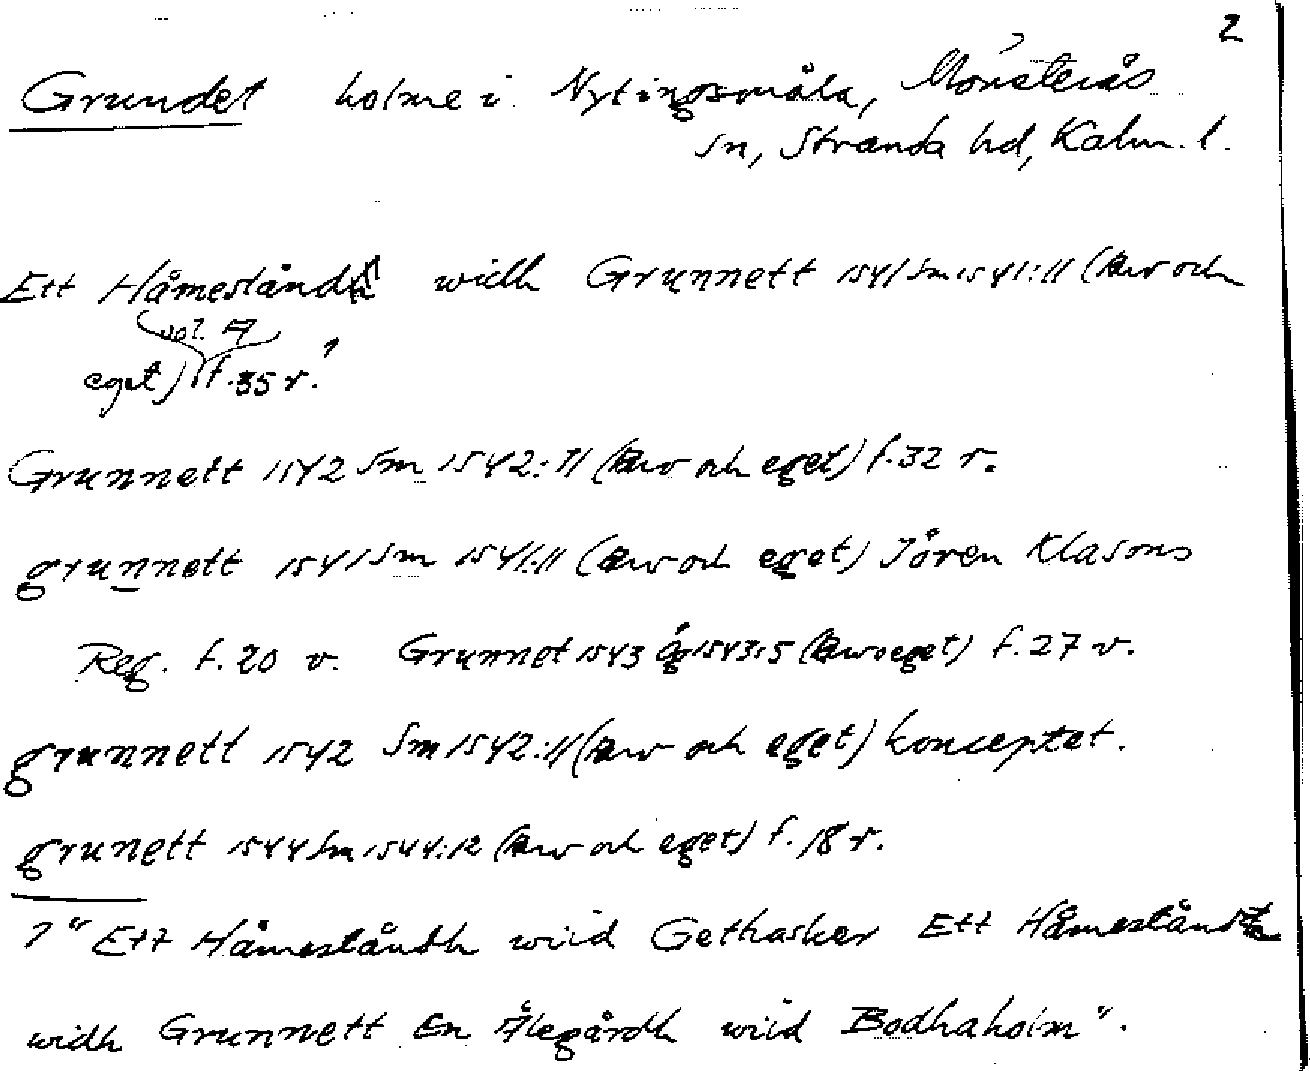 2
Grundet holme i Nytingsmåla, Mönsterås
sn, Stranda hd, Kalm. l.
Ett Håmeståndh widh Grunnett 1541 Sm 1541:11 (Arv och
vol. A
eget) f. 35 r.¹
Grunnett 1542 Sm 1542:11 (Arv och eget) f. 32 r.
grunnett 1541 Sm 1541:11 (Arv och eget) Jören Klasons
Reg. f. 20 v. Grunnet 1543 Ög 1543:5 (Arv o eget) f. 27 v.
grunnett 1542 Sm 1542:11 (Arv och eget) konceptet.
grunett 1544 Sm 1544:12 (Arv och eget) f. 18 r.
1 "Ett Håmeståndh wiid Gethasker Ett Håmestånd
widh Grunnett En Ålegårdh wiid Bodhaholm".